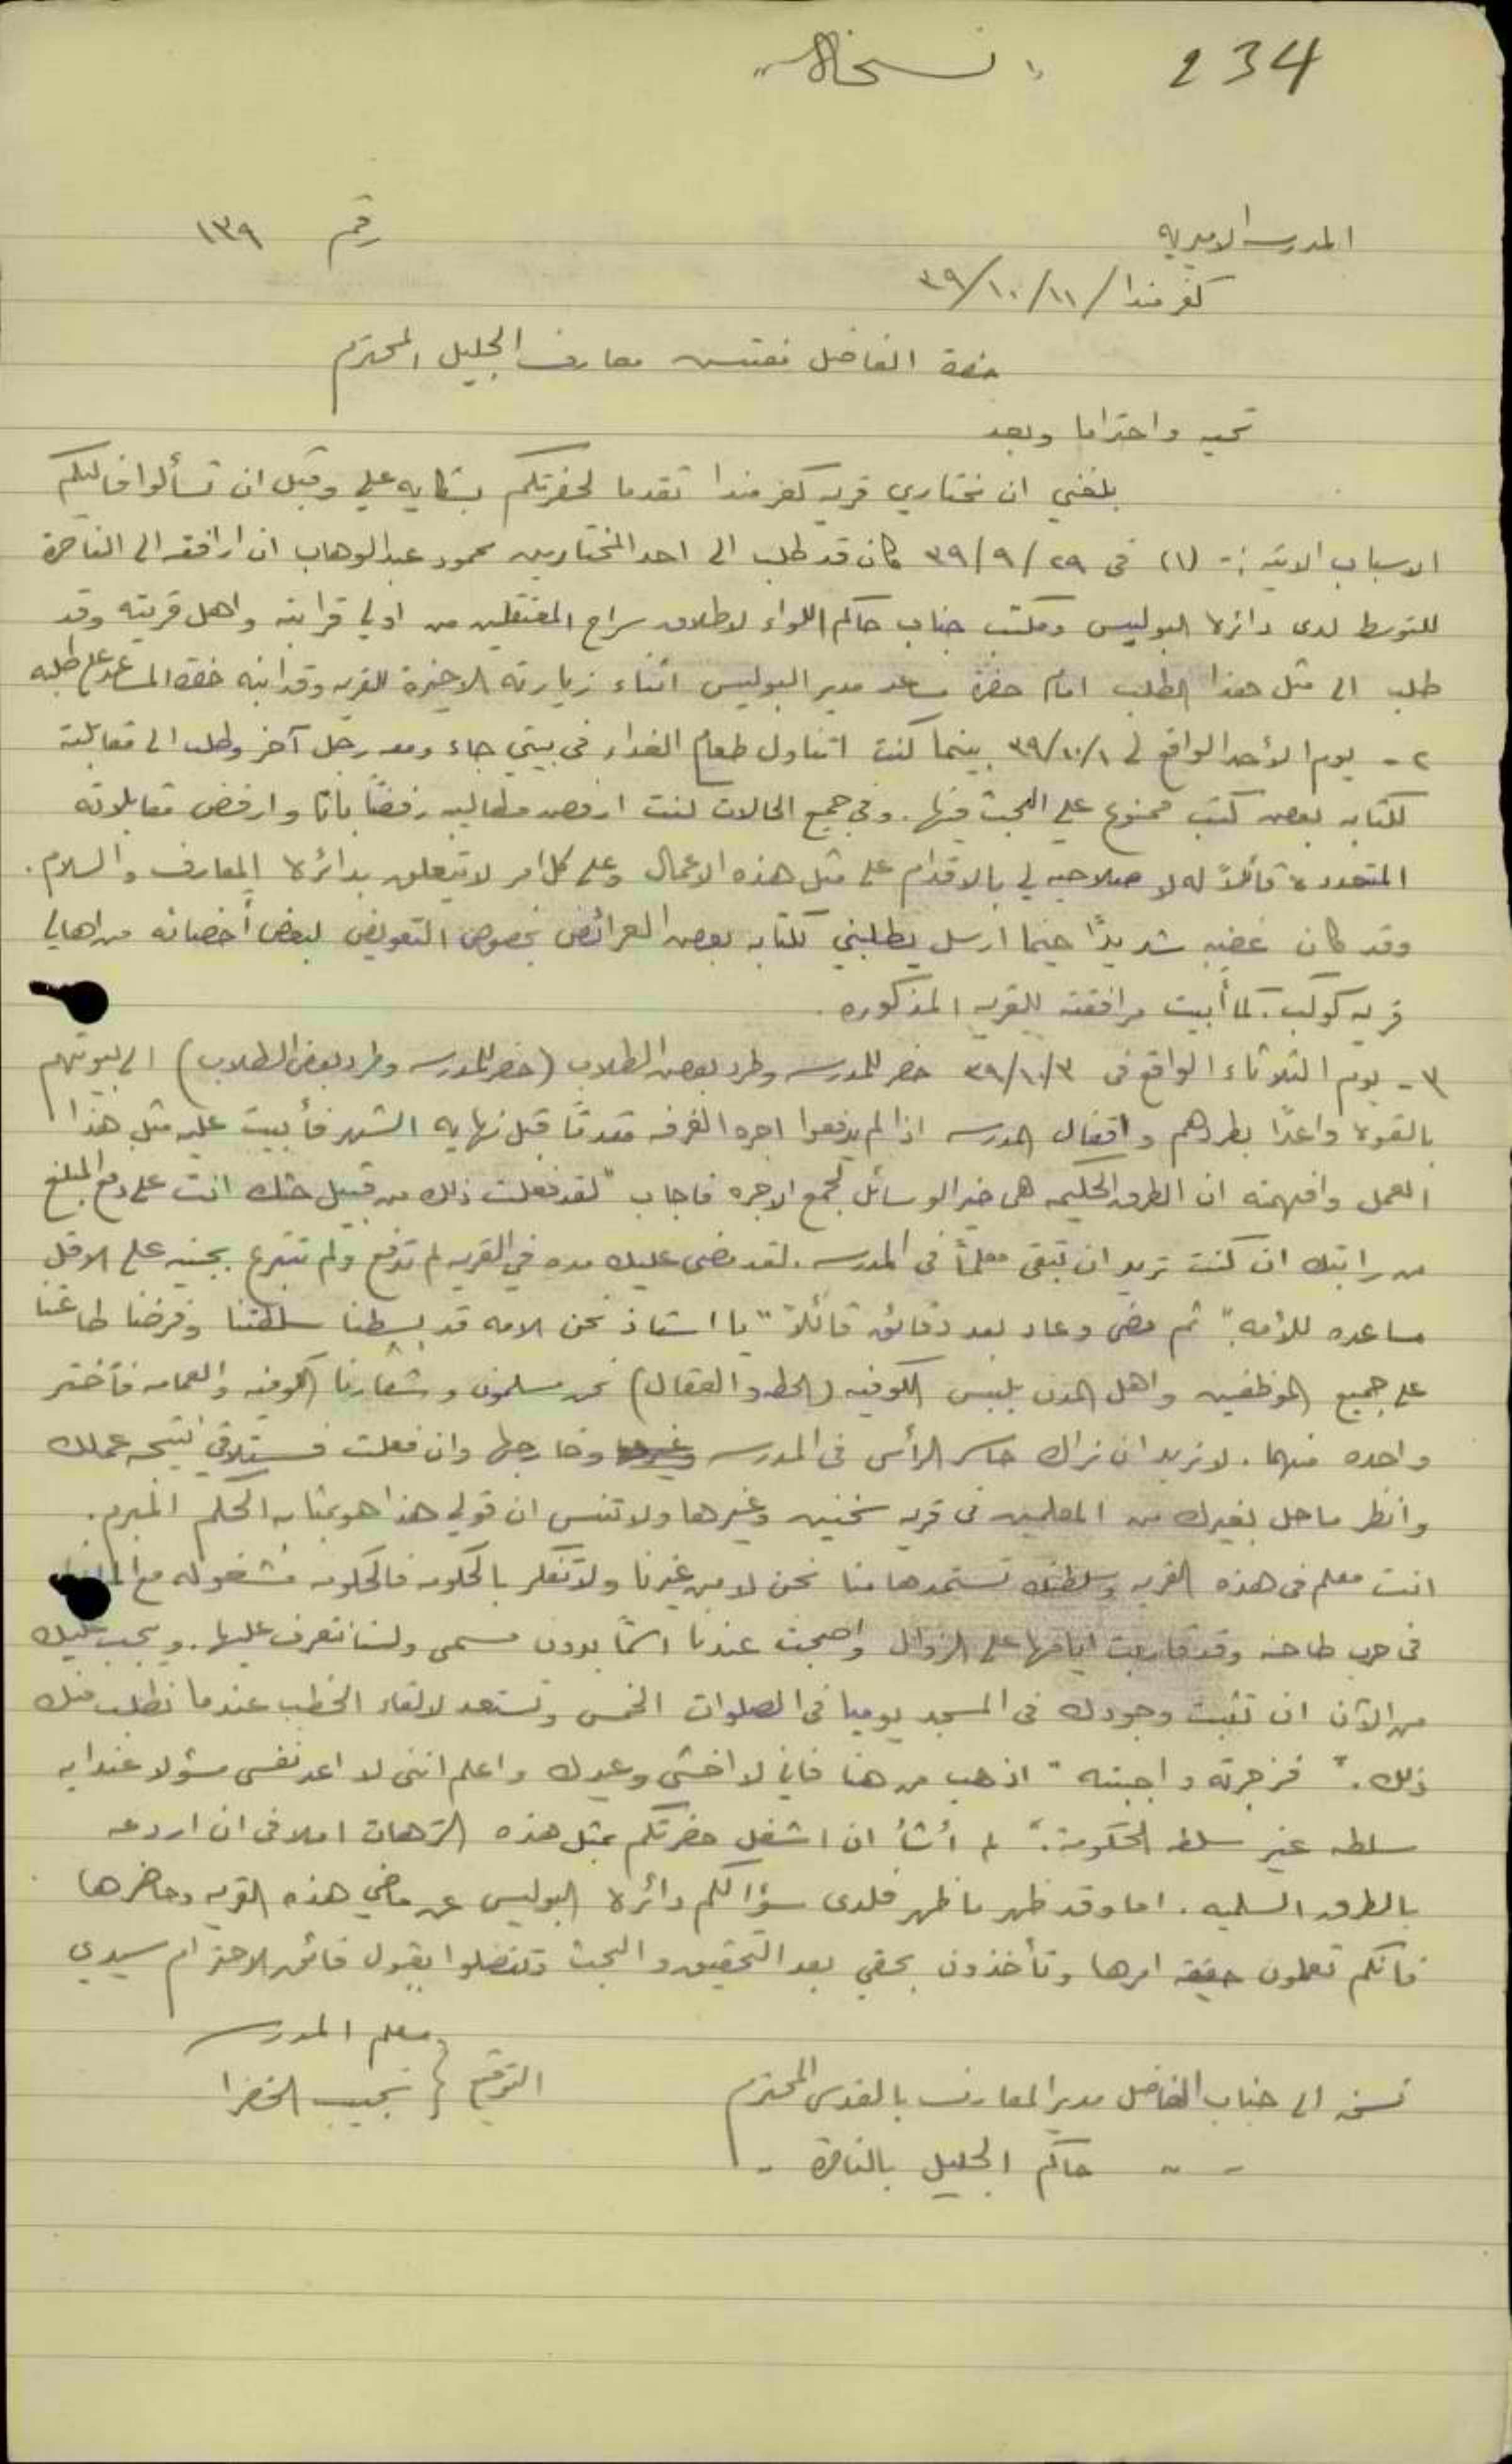 234 "نسخة"
المدرسة الاميرية رقم ١٣٩
كفرمندا / ١١/١٠/٣٩
حضرة الفاضل مفتش معارف الجليل المحترم
تحيه واحتراما وبعد
بلغني ان مختاري قريه كفرمندا تقدما لحضرتكم بشكايه علي وقبل ان تسألوا فاليكم
الاسباب الاتيه :- (١) في ٢٩/٩/٣٩ كان قد طلب الى احد المختارين محمود عبد الوهاب ان ارافقه الى الناصرة
للتوسط لدى دائرة البوليس ومكتب جناب حاكم اللواء لاطلاق سراح المعتقلين من اولي قرابته واهل قريته وقد
طلب الى مثل هذا الطلب امام حضرة مساعد مدير البوليس اثناء زيارته الاخيرة للقريه وقد انبه حضرة المساعد على طلبه
٢ - يوم الأحد الواقع في ٣٩/١٠/١ بينما كنت اتناول طعام الغداء في بيتي جاء ومعه رجل آخر وطلب الى مقابلته
لكتابه بعض كتب ممنوع علي البحث فيها. وفي جميع الحالات كنت ارفض مطاليبه رفضاً باتا وارفض مقابلاته
المتعددة قائلاً له لا صلاحيه لي بالاقدام على مثل هذه الاعمال وعلى كل امر لا يتعلق بدائرة المعارف والسلام.
وقد كان غضبه شديدًا حينما ارسل يطلبني لكتابه بعض العرائض بخصوص التعويض لبعض أخصائه من اهالي
قريه كوكب. كما أبيت مرافقته للقريه المذكوره.
٣ - يوم الثلاثاء الواقع في ٣٩/١٠/٣ حضر للمدرسه وطرد بعض الطلاب (حضر للمدرسه وطرد بعض الطلاب) الى بيوتهم
بالقوة واعدًا بطردهم واقفال المدرسه اذا لم يدفعوا اجره الغرفه مقدمًا قبل نهايه الشهر فأبيت عليه مثل هذا
العمل وافهمته ان الطرق الحكيمه هي خير الوسائل لجمع الاجره فاجاب "لقد فعلت ذلك من قبيل حثك انت على دفع المبلغ
من راتبك ان كنت تريد ان تبقى معلماً في المدرسه. لقد مضى عليك مده في القريه لم تدفع ولم تتبرع بجنيه على الاقل
مساعده للأمه." ثم مضى وعاد بعد دقائق قائلاً "يا استاذ نحن الامه قد بسطنا سلطتنا وفرضنا طاعتنا
على جميع الموظفين واهل المدن بلبس الكوفيه (الحطه والعقال) نحن مسلمون وشعارنا الكوفيه والعمامه فأختر
واحده منهما. لا نريد ان نراك حاسر الرأس في المدرسه وخارجها وان فعلت فستلاقي نتيجه عملك
وانظر ما حل بغيرك من المعلمين في قريه سخنين وغيرها ولا تنس ان قولي هذا هو بمثابه الحكم المبرم.
انت معلم في هذه القريه وسلطتك تستمدها منا نحن لا من غيرنا ولا تفكر بالحكومه فالحكومه مشغوله مع
في حرب طاحنه وقد قاربت ايامها على الزوال واصبحت عندنا اسمًا بدون مسمى ولسنا نتعرف عليها. ويجب عليك
من الآن ان تثبت وجودك في المسجد يوميا في الصلوات الخمس وتستعد لالقاء الخطب عندما نطلب منك
ذلك." فزجرته واجبته "اذهب من هنا فاني لا اخشى وعيدك واعلم انني لا اعد نفسي مسؤلا عند ايه
سلطه غير سلطه الحكومة." لم أشأ ان اشغل حضرتكم بمثل هذه الترهات املا في ان اردعه
بالطرق السلميه. اما وقد ظهر ما ظهر فلدى سؤالكم دائرة البوليس عن ماضي هذه القريه وحاضرها
فانكم تعلمون حقيقة امرها وتأخذون بحقي بعد التحقيق والبحث وتفضلوا بقبول فائق الاحترام سيدي
معلم المدرسه
التوقيع } نجيب الخضرا
نسخه الى جناب الفاضل مدير المعارف بالقدس المحترم
" " حاكم الجليل بالناصرة "